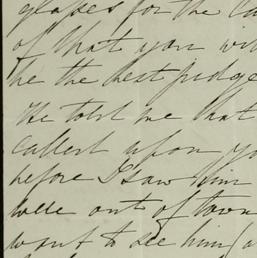 glasses for the
of that you will
be the best judge
He told me that
called upon yo
before I saw him
were out of town
want to see him (a